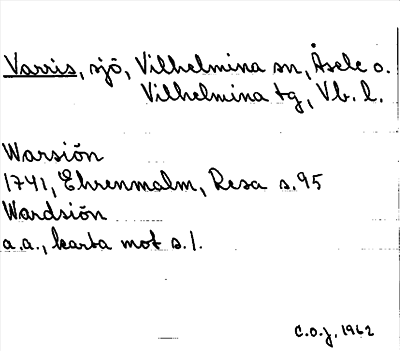 Varris, sjö, Vilhelmina sn, Åsele o.
Vilhelmina tg, Vb. l.
Warsiön
1741, Ehrenmalm, Resa s. 95
Wardsiön
a.a., karta mot s. 1.
C.O.J. 1962